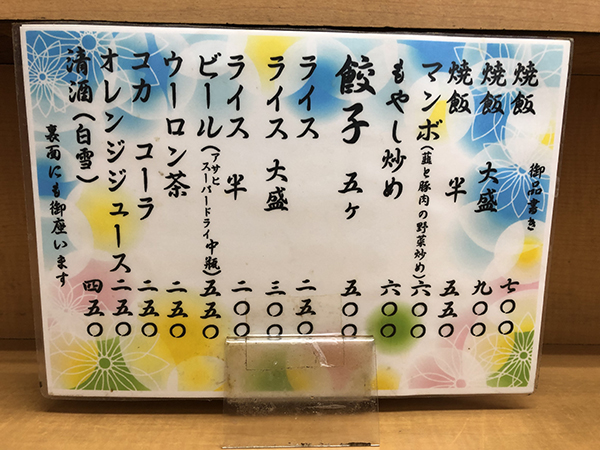 御品書き
焼飯 七〇〇
焼飯 大盛 九〇〇
焼飯 半 五五〇
マンボ(韮と豚肉の野菜炒め) 六〇〇
もやし炒め 六〇〇
餃子 五ヶ 五〇〇
ライス 二五〇
ライス 大盛 三〇〇
ライス 半 二〇〇
ビール(アサヒスーパードライ中瓶) 五五〇
ウーロン茶 二五〇
コカ コーラ 二五〇
オレンジジュース 二五〇
清酒(白雪) 四五〇
裏面にも御座います